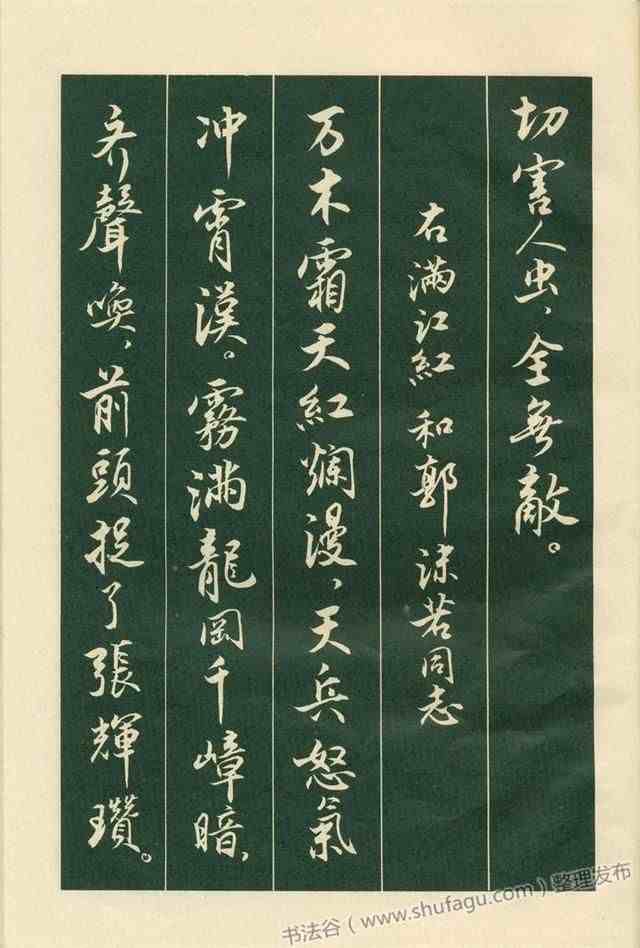 切害人虫，全無敵。
右滿江紅 和郭沫若同志
万木霜天紅爛漫，天兵怒氣
冲霄漢。霧滿龍岡千嶂暗，
齐聲喚，前頭捉了張輝瓚。
书法谷（www.shufagu.com）整理发布